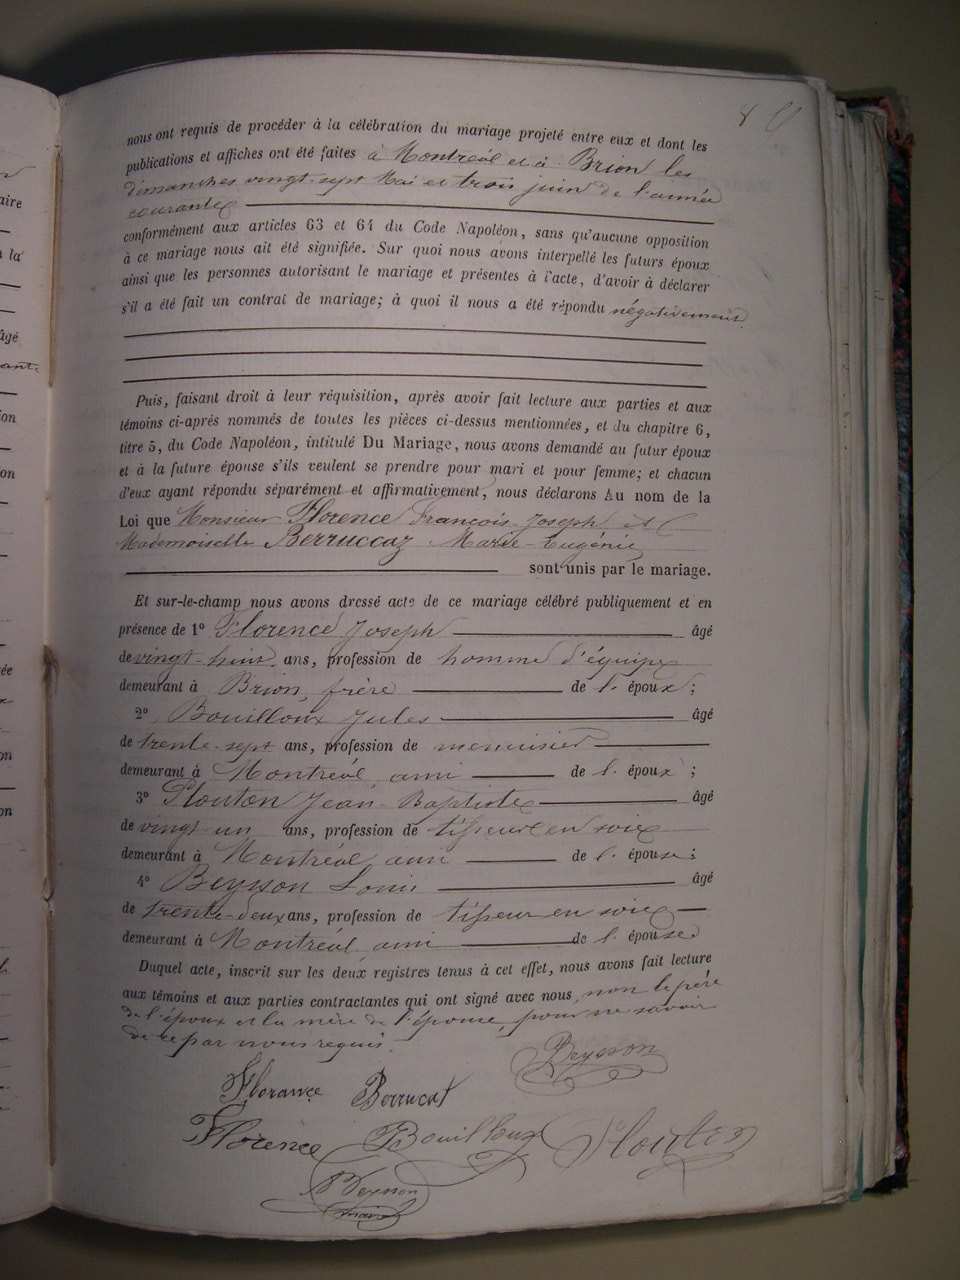 8
nous ont requis de procéder à la célébration du mariage projeté entre eux et dont les
publications et affiches ont été faites à Montréal et à Brion les
dimanches vingt-sept Mai et trois juin de l'année
courante
conformément aux articles 63 et 64 du Code Napoléon, sans qu'aucune opposition
à ce mariage nous ait été signifiée. Sur quoi nous avons interpellé les futurs époux
ainsi que les personnes autorisant le mariage et présentes à l'acte, d'avoir à déclarer
s'il a été fait un contrat de mariage; à quoi il nous a été répondu négativement
Puis, faisant droit à leur réquisition, après avoir fait lecture aux parties et aux
témoins ci-après nommés de toutes les pièces ci-dessus mentionnées, et du chapitre 6,
titre 5, du Code Napoléon, intitulé Du Mariage, nous avons demandé au futur époux
et à la future épouse s'ils veulent se prendre pour mari et pour femme; et chacun
d'eux ayant répondu séparément et affirmativement, nous déclarons Au nom de la
Loi que Monsieur Florence François-Joseph et
Mademoiselle Berruccaz Marie-Eugénie
sont unis par le mariage.
Et sur-le-champ nous avons dressé acte de ce mariage célébré publiquement et en
présence de 1° Florence Joseph âgé
de vingt-huit ans, profession de homme d'équipe
demeurant à Brion, frère de l'époux;
2° Bouilloux Jules âgé
de trente-sept ans, profession de menuisier
demeurant à Montréal ami de l'époux;
3° Plouton Jean-Baptiste âgé
de vingt-un ans, profession de tisseur en soie
demeurant à Montréal, ami de l'épouse;
4° Beysson Louis âgé
de trente-deux ans, profession de tisseur en soie
demeurant à Montréal ami de l'épouse
Duquel acte, inscrit sur les deux registres tenus à cet effet, nous avons fait lecture
aux témoins et aux parties contractantes qui ont signé avec nous, non le père
de l'époux et la mère de l'épouse, pour ne savoir
de ce par nous requis.
Beysson
Florance Berrucat
Florence Bouilloux Plouton
Beysson
maire